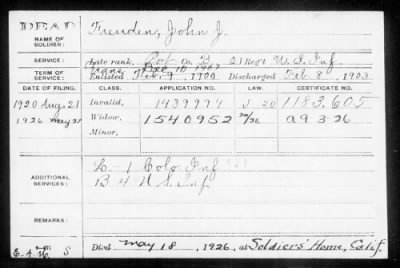 DEAD
NAME OF SOLDIER: Freuden, John J.
SERVICE: Late rank, Pvt Co. B, 21 Reg't U.S. Inf.
TERM OF SERVICE: Trans. Dec 10 1902
Enlisted Feb. 9, 1900 Discharged Feb. 8, 1903
DATE OF FILING. CLASS. APPLICATION NO. LAW. CERTIFICATE NO.
1920 Aug. 21 Invalid, 1439974 J 20 1183,605
1926 May 28 Widow, 1540952 A 9 3-26
Minor,
ADDITIONAL SERVICES: L-1 Colo Inf
B 4 U.S. Inf.
REMARKS:
Died May 18, 1926, at Soldiers' Home, Calif.
S